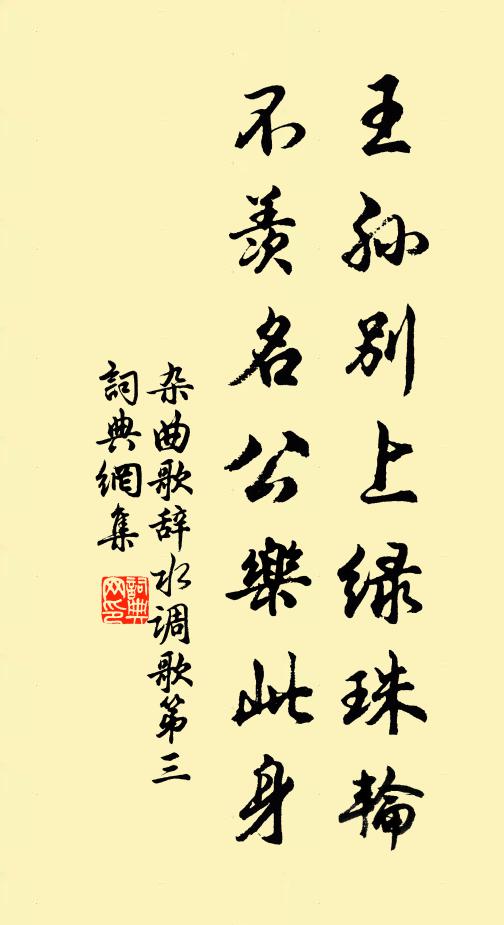 王孙别上绿珠輪
不羨名公樂此身
杂曲歌辞水调歌第三
詞典網集
詞典网印